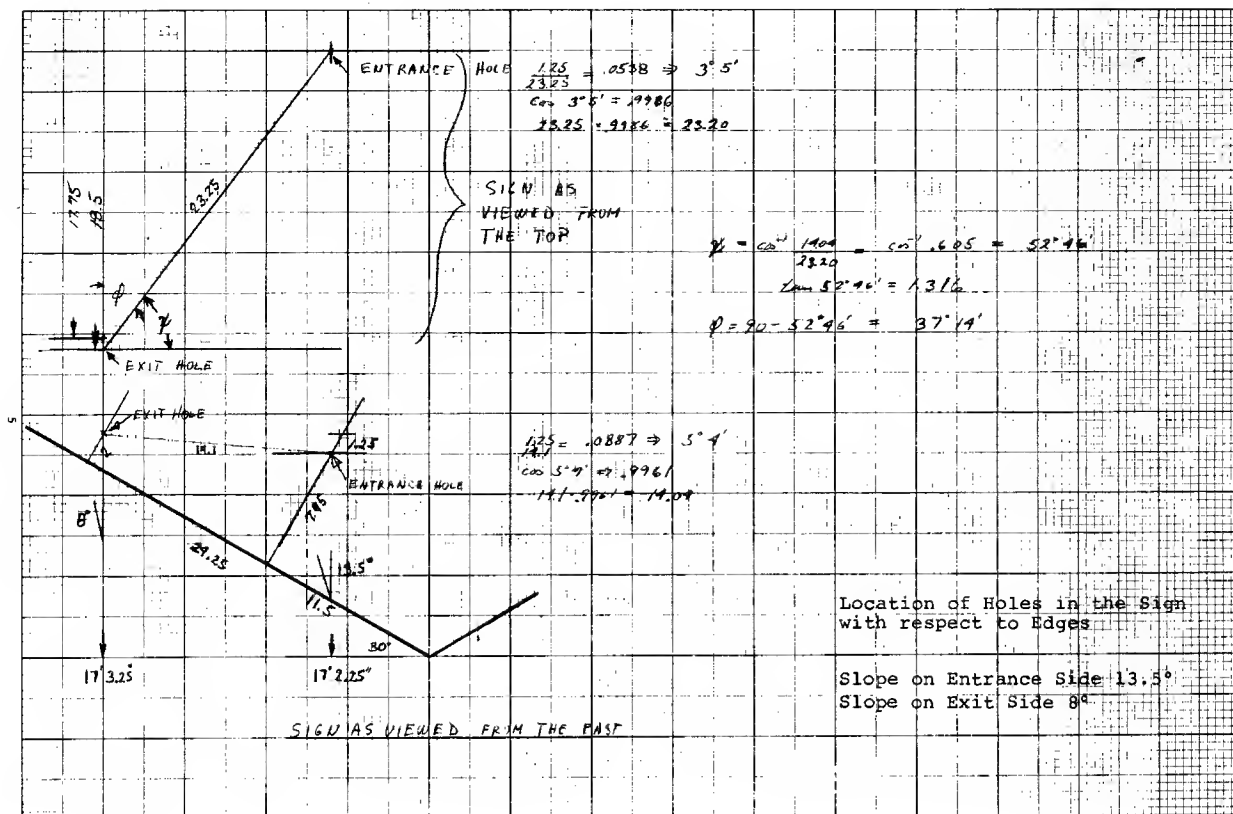 ENTRANCE HOLE
1.25
23.25
= .0538 ⇒ 3° 5'
cos 3° 5' = .9986
23.25 · .9986 = 23.20
17.75
18.5
23.25
SIGN AS
VIEWED FROM
THE TOP
ψ = cos⁻¹ 14.04 = cos⁻¹ .605 = 52° 46'
23.20
tan 52° 46' = 1.316
φ = 90 - 52° 46' = 37° 14'
φ
ψ
EXIT HOLE
EXIT HOLE
5
2
14.1
1.25
ENTRANCE HOLE
1.25 = .0887 ⇒ 5° 4'
14.1
cos 5° 4' ⇒ .9961
14.1 · .9961 = 14.04
7.45
8°
29.25
13.5°
11.5
30°
17' 3.25"
17' 2.25"
Location of Holes in the Sign
with respect to Edges
Slope on Entrance Side 13.5°
Slope on Exit Side 8°
SIGN AS VIEWED FROM THE EAST